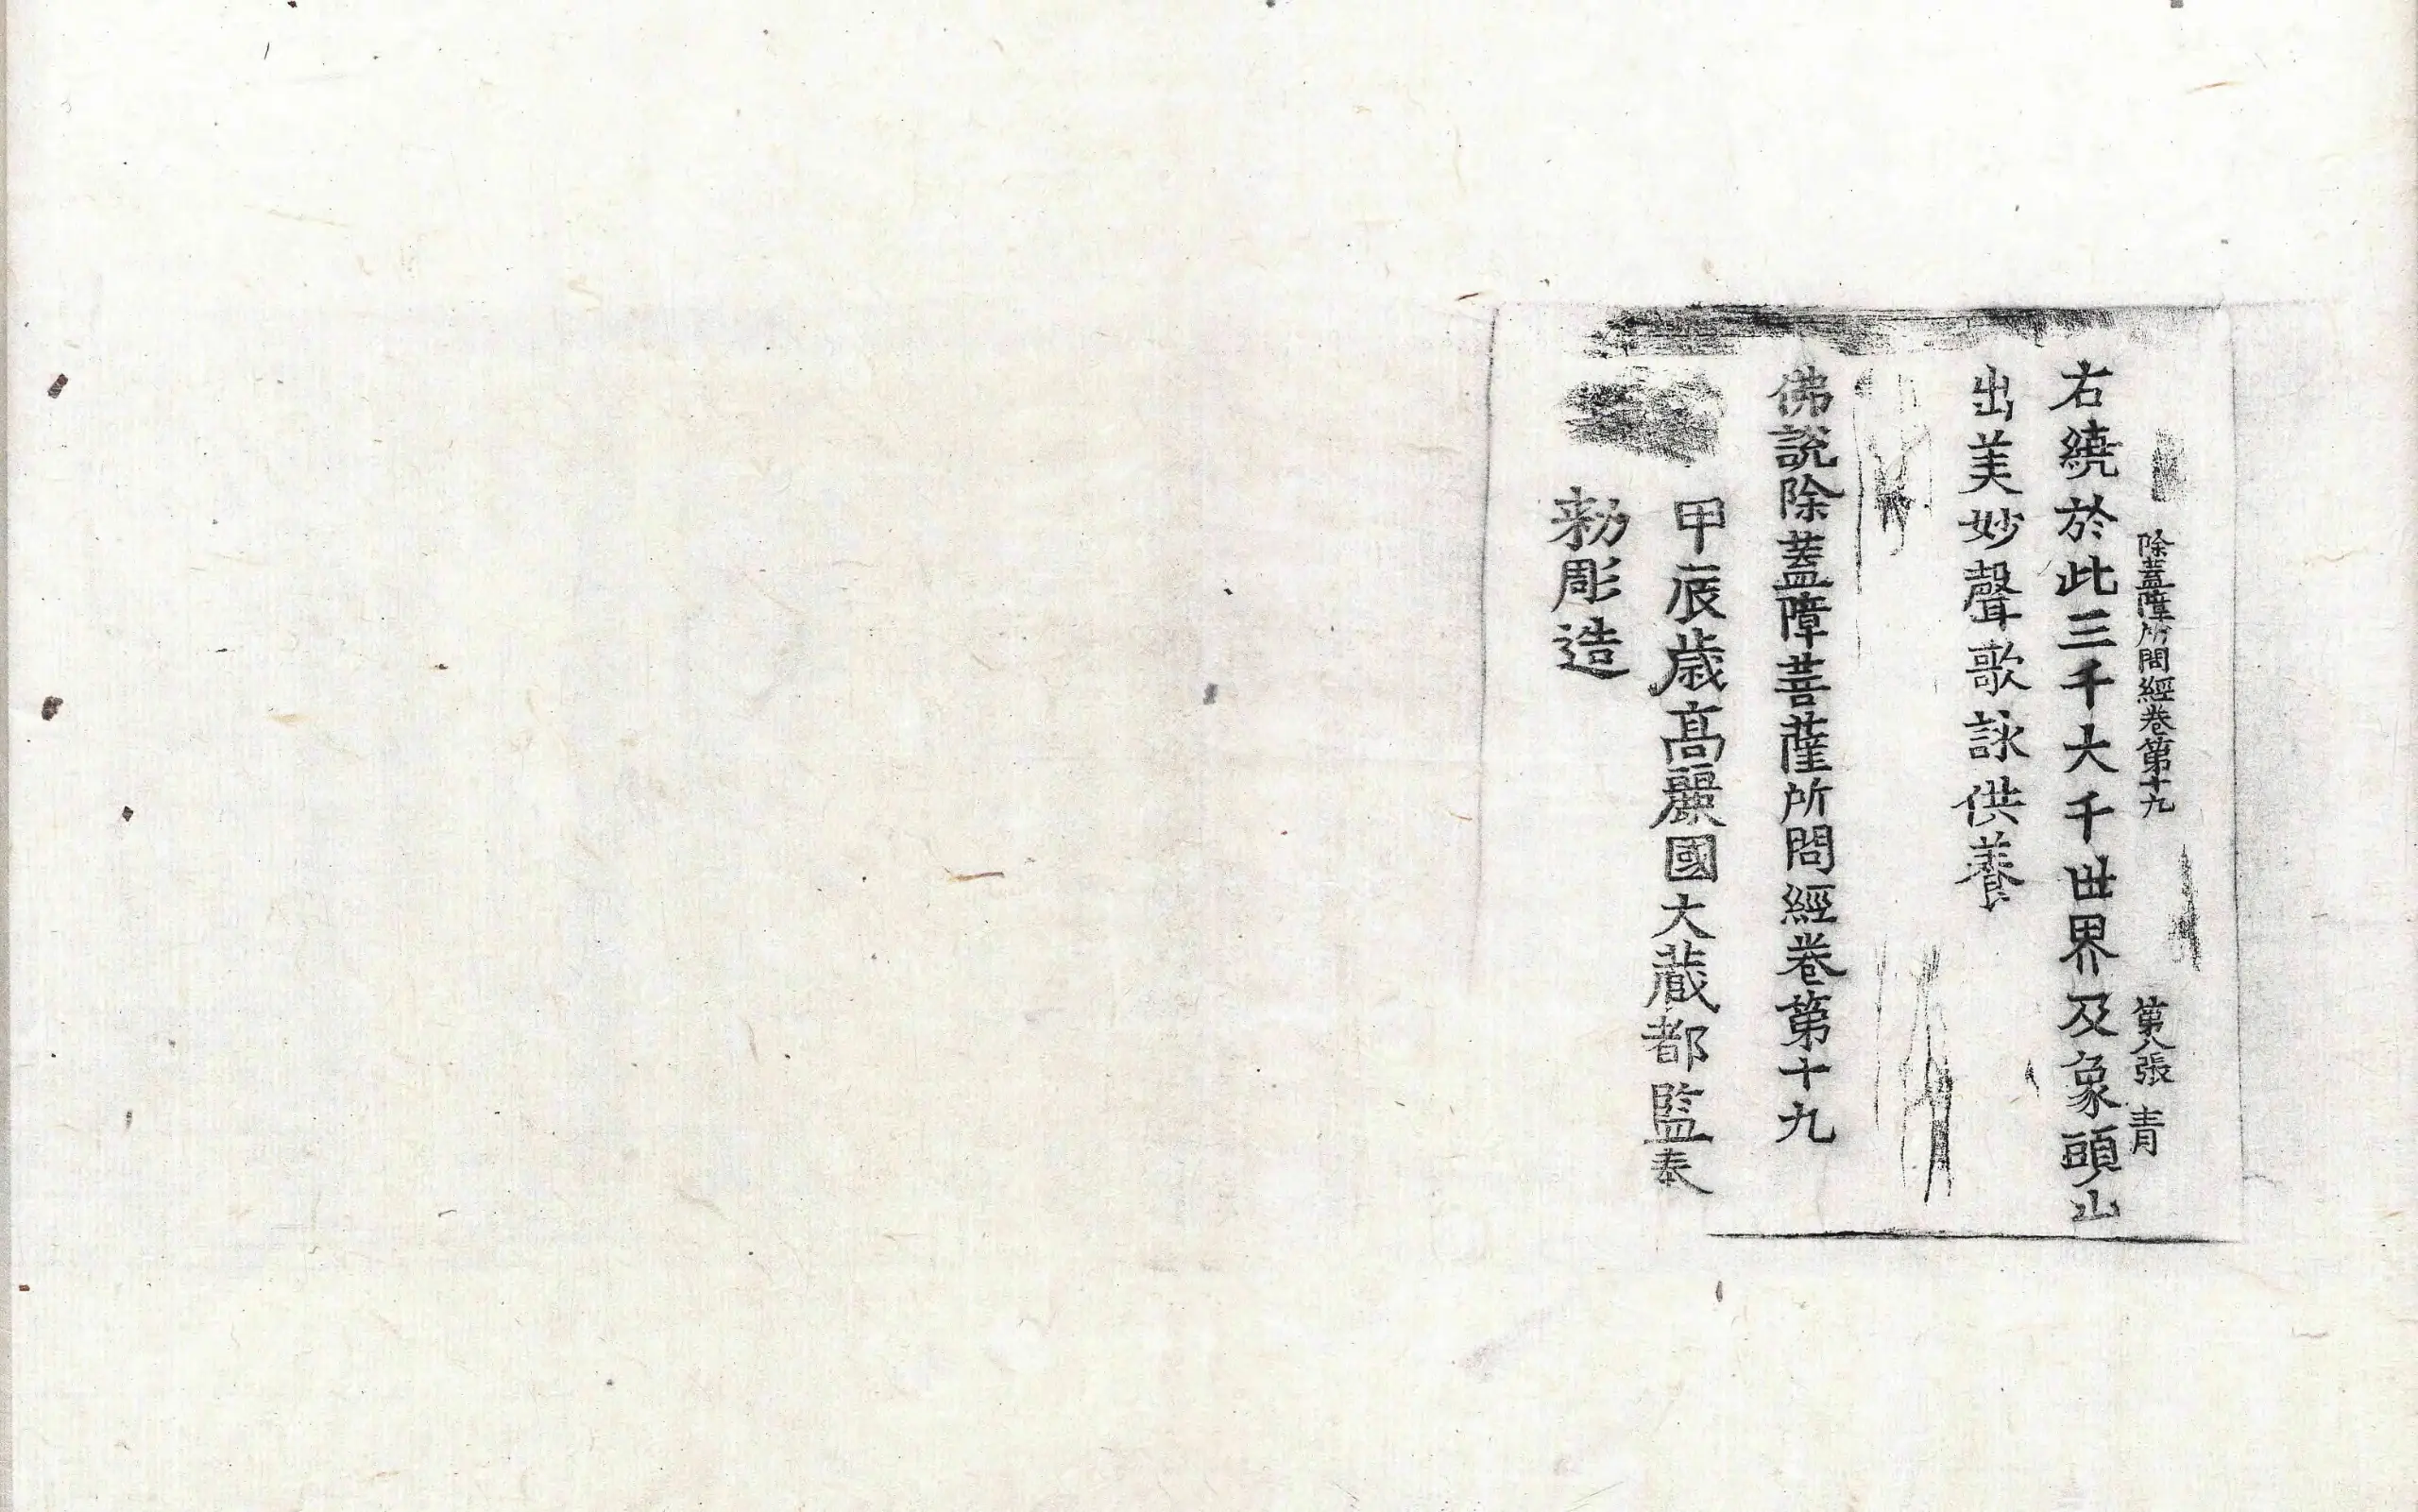 除蓋障所問經卷第十九 第八張 青
右繞於此三千大千世界及象頭山
出美妙聲歌詠供養
佛說除蓋障菩薩所問經卷第十九
甲辰歲高麗國大藏都監奉
勑彫造